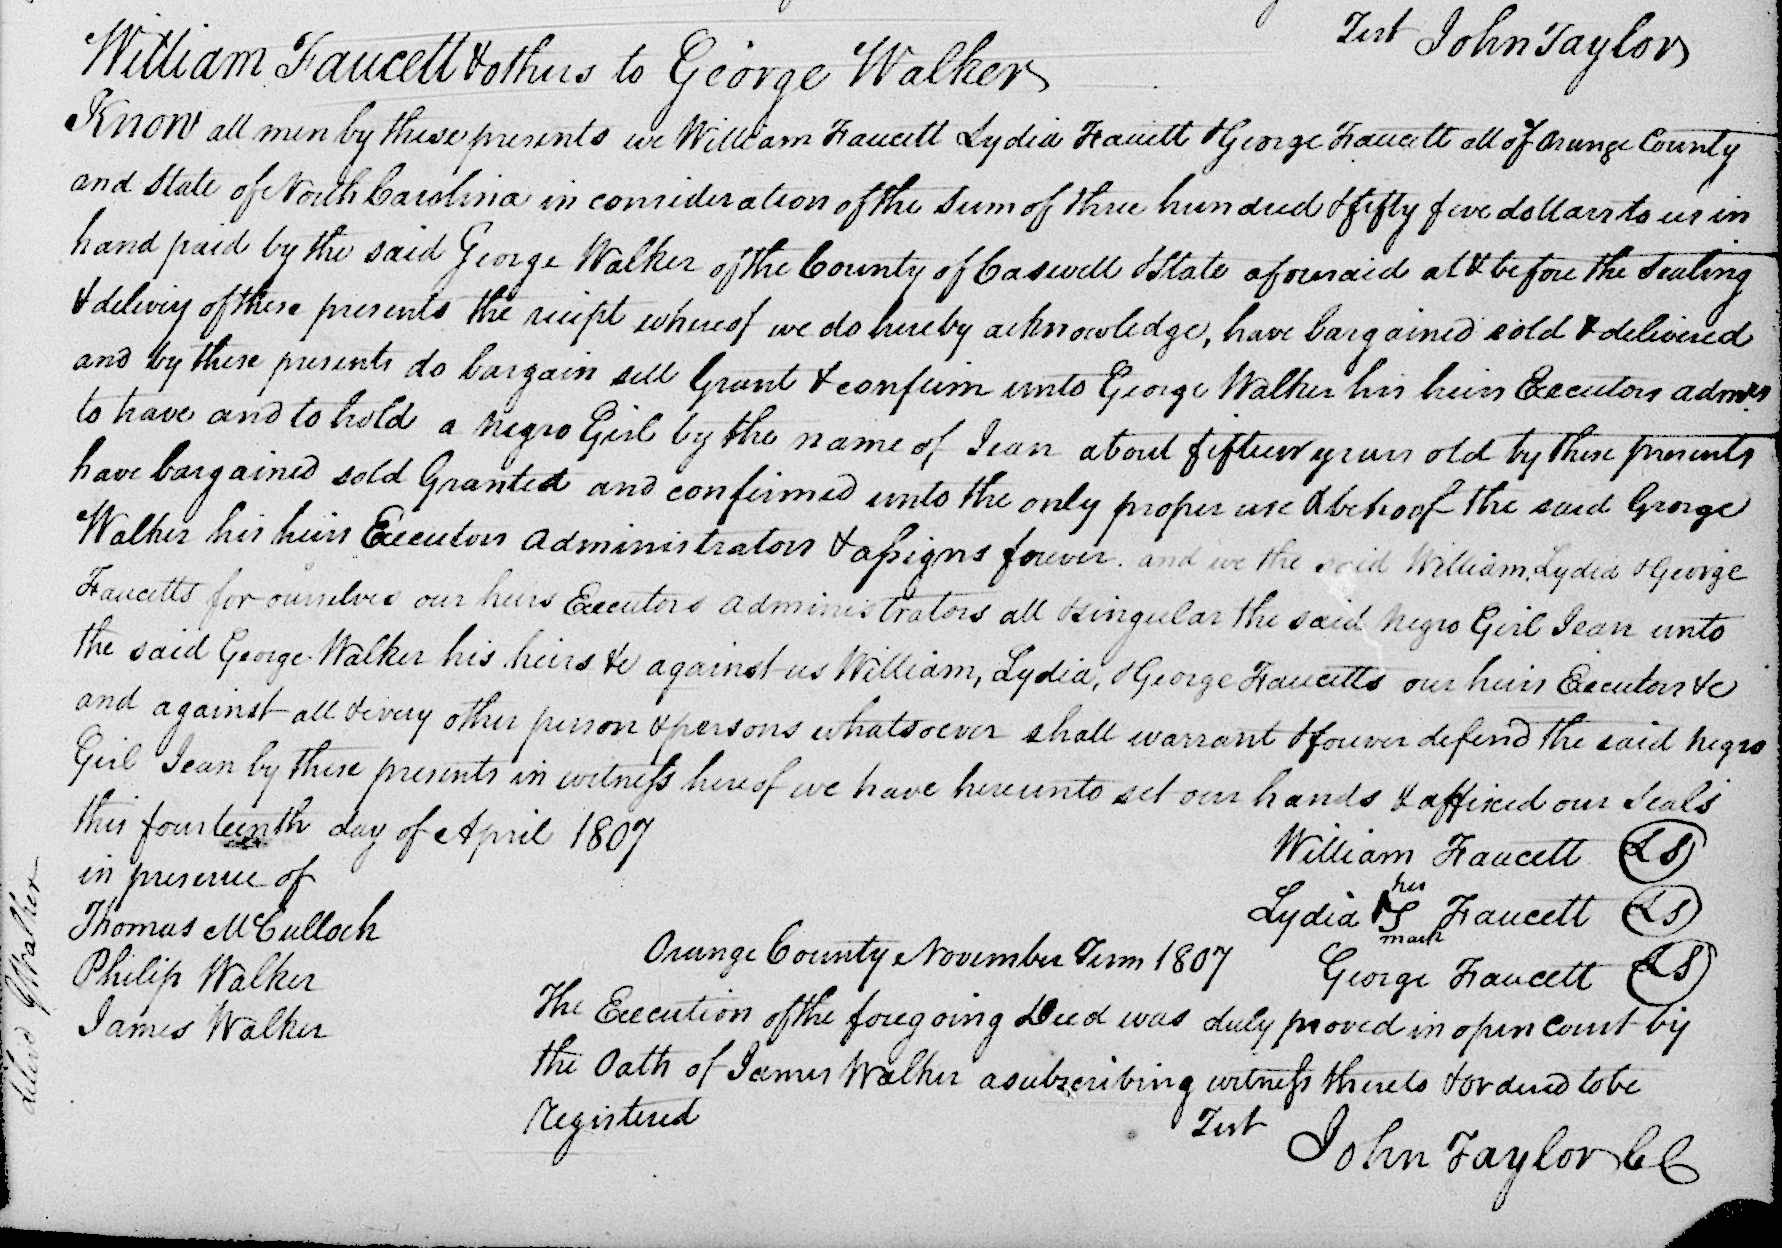 Test John Taylor
William Faucett & others to George Walker
Know all men by these presents we William Faucett Lydia Faucett & George Faucett all of Orange County
and State of North Carolina in consideration of the Sum of three hundred & fifty five dollars to us in
hand paid by the said George Walker of the County of Caswell & State aforesaid at & before the Sealing
& delivery of these presents the reciept whereof we do hereby acknowledge, have bargained sold & delivered
and by these presents do bargain sell Grant & confirm unto George Walker his heirs Executors admrs
to have and to hold a Negro Girl by the name of Jean about fifteen years old by these presents
have bargained sold Granted and confirmed unto the only proper use & behoof the said George
Walker his heirs Executors Administrators & assigns forever. and we the said William, Lydia & George
Faucetts for ourselves our heirs Executors Administrators all & singular the said Negro Girl Jean unto
the said George Walker his heirs &c against us William, Lydia, & George Faucetts our heirs Executors &c
and against all & every other person & persons whatsoever shall warrant & forever defend the said Negro
Girl Jean by these presents in witness hereof we have hereunto set our hands & affixed our Seals
this fourteenth day of April 1807
William Faucett LS
in presence of
her
Lydia S Faucett LS
mark
Thomas McCulloch
Orange County November Term 1807
George Faucett LS
Philip Walker
The Execution of the foregoing Deed was duly proved in open Court by
James Walker
the Oath of James Walker a subscribing witness thereto & ordered to be
Registered
Test John Taylor CC
delvd G Walker